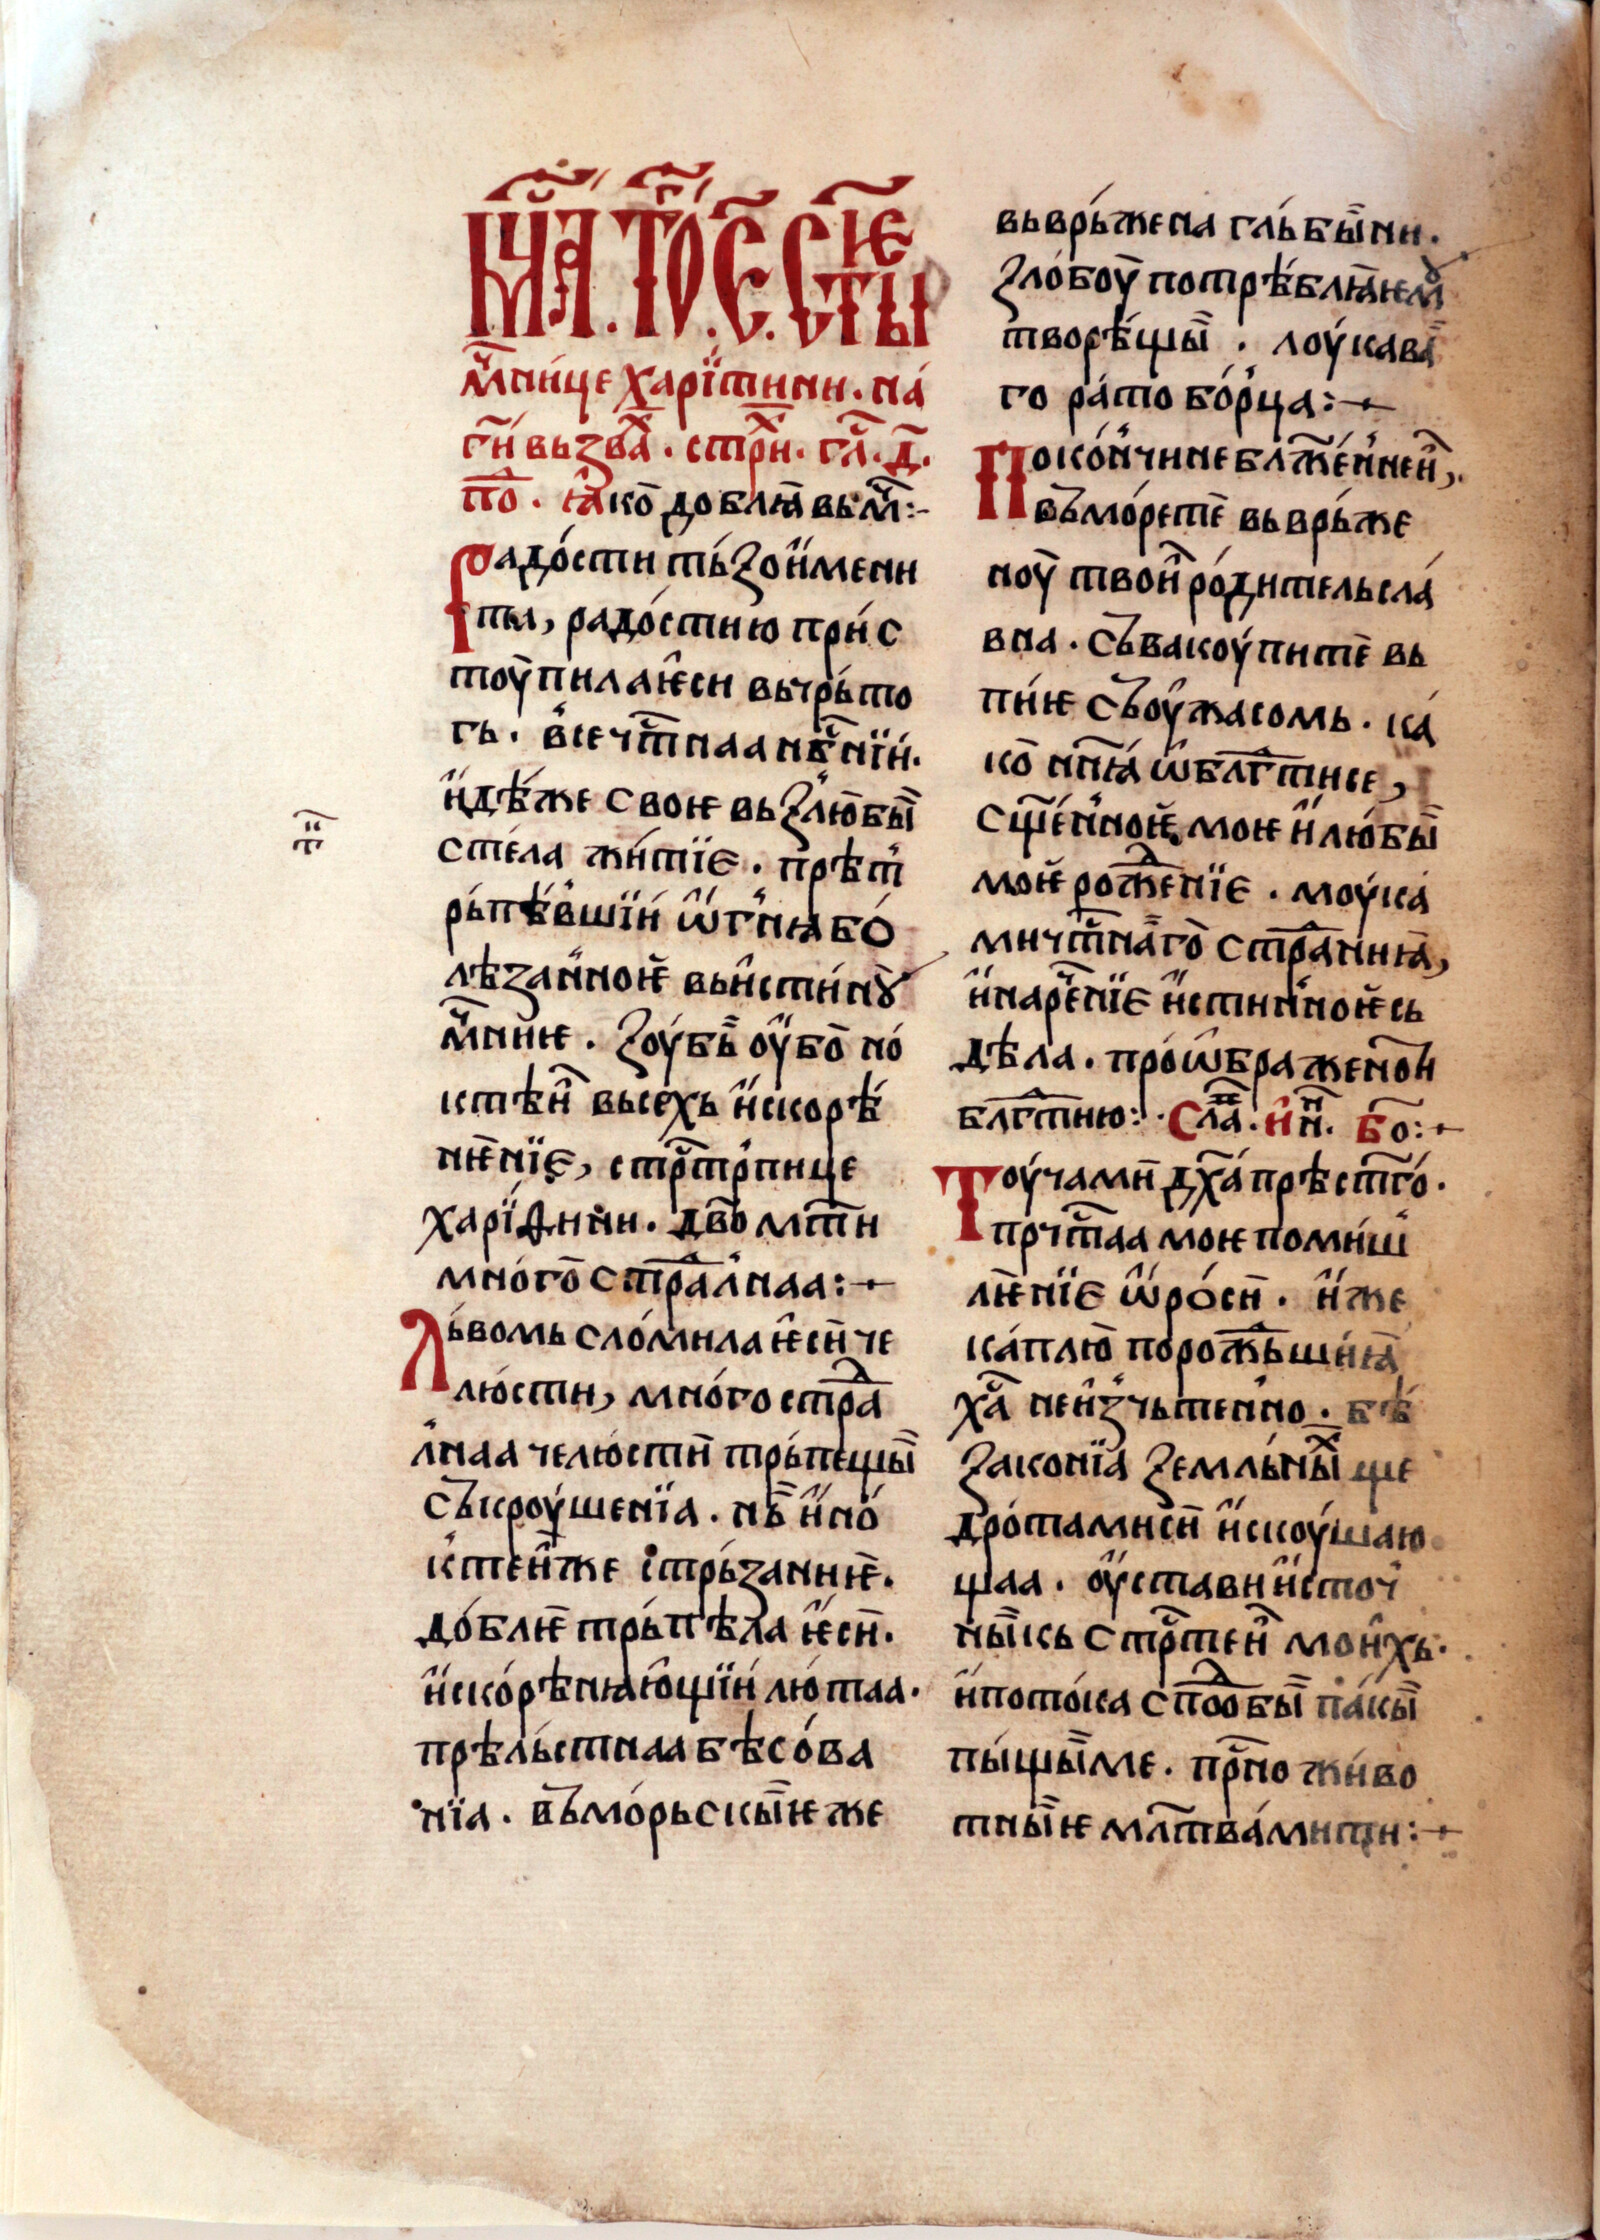 мⷭ҇ца. то́г҇. є҃. ст҃ыѥ
мⷱ҇ни́це харїтини. на́
гѝ вьзва̑ⷯ. стрⷯи. гла҃. д҃.
по̑ⷣ. ꙗ҆ко̀ доблꙗ̀ вьм҃ⷱ:-
Радо́сти ть́ꙁоименⷩи
та, радо́стию при́с
тоу̀пила ѥ҆си вьчрь́то
гь. в҆сечⷭ҇тнаа нв҃нїи́.
и҆дѣ́же своѥ вьꙁлю̀бы̏
сте́ла жи́тїє. прѣт҆
рьпѣ́в҆шїи́ ѡ҆г҆нꙗ бо́
лѣзан҆ноѥ̀ вьи҆сти́нꙋ
мⷱ҇ниѥ. ꙁоу́бь̏ оу҆бо̀ но́
ктѣи̑ вьсехь и҆скорѣ́
нѥ̀нїє, стрⷭ҇тр҆пице
харїѳини. дв҃о мт҃и
мно́го̀ стра̑ⷣл҆наа:~
Львомь сло́мила ѥ҆сѝ че
лю́сти, мно́гостра̑ⷣ
л҆наа челю́стѝ трь́пещы̏
сьⷦ҇роу́шенїа. нь̏ и҆но́
к҆теи̑же стрь́заниѥ̀.
до́блѥ̀ трьпѣ́ла ѥ҆сѝ.
и҆ско́рѣнꙗю҆щїи́ лю́таа.
прѣль́стнаа бѣсо́ва
нїа. вьмо́рьскы̏ѥ же
вьврь́жена гль́бы̏ни.
ꙁло́боу̀ потрѣ́блꙗ̀ѥмꙋ
творѣ́щы̏. лоу́кава̏
го ра́тобо́р҆ца:~
Поко́н҆чине блⷤ҇е́н҆неи̑,
вьмо́ретѐ вьврь́же
ноу̀ твои̑ ро́дительсла́
вна. сьвакоу́питѐ вь
пи́ѥ сьоу҆жасомь. ка́
ко̀ ннꙗ҃ ѡ҆блⷢ҇тисе,
сще́н҆ноѥ̀ моѥ и҆ лю́бы̏
моѥ̀ рожⷣе́нїє. моу́ка
мичⷭ҇тна̏го̀ страⷣаниꙗ̀,
и҆нарⷱ҇е́нїє и҆стин҆ноѥ̀сь
дѣ́ла. про́ѡ҆бражено̀и
блⷢ҇тию: сла̑ⷡ. и҆ нн҃ꙗ. бо̑:~
Тоу́чамѝ дх҃а прѣстⷢ҇о́.
прчⷭ҇таа моѥ поми́ш҆
лѥ̀нїє ѡ҆ро́сѝ. и҆же
ка́плю̀ порожⷣь́шиꙗ̀
хⷭ҇а неи҆ꙁ҆чьтен҆но. бѣ́
ꙁаконїа ꙁемль́ны̏ⷯ ще
дро́тамисѝ и҆скоу́шаю
щаа. оу҆став и҆ и҆сточ҆
ны̏кь стрⷭ҇теи̑ мои̑хь.
и҆ потока споⷣ҇бы̏ па́кы̏
пы́щы̏ме. прⷭ҇но жи́во
тны̏ѥ млт҃ва́мити:~